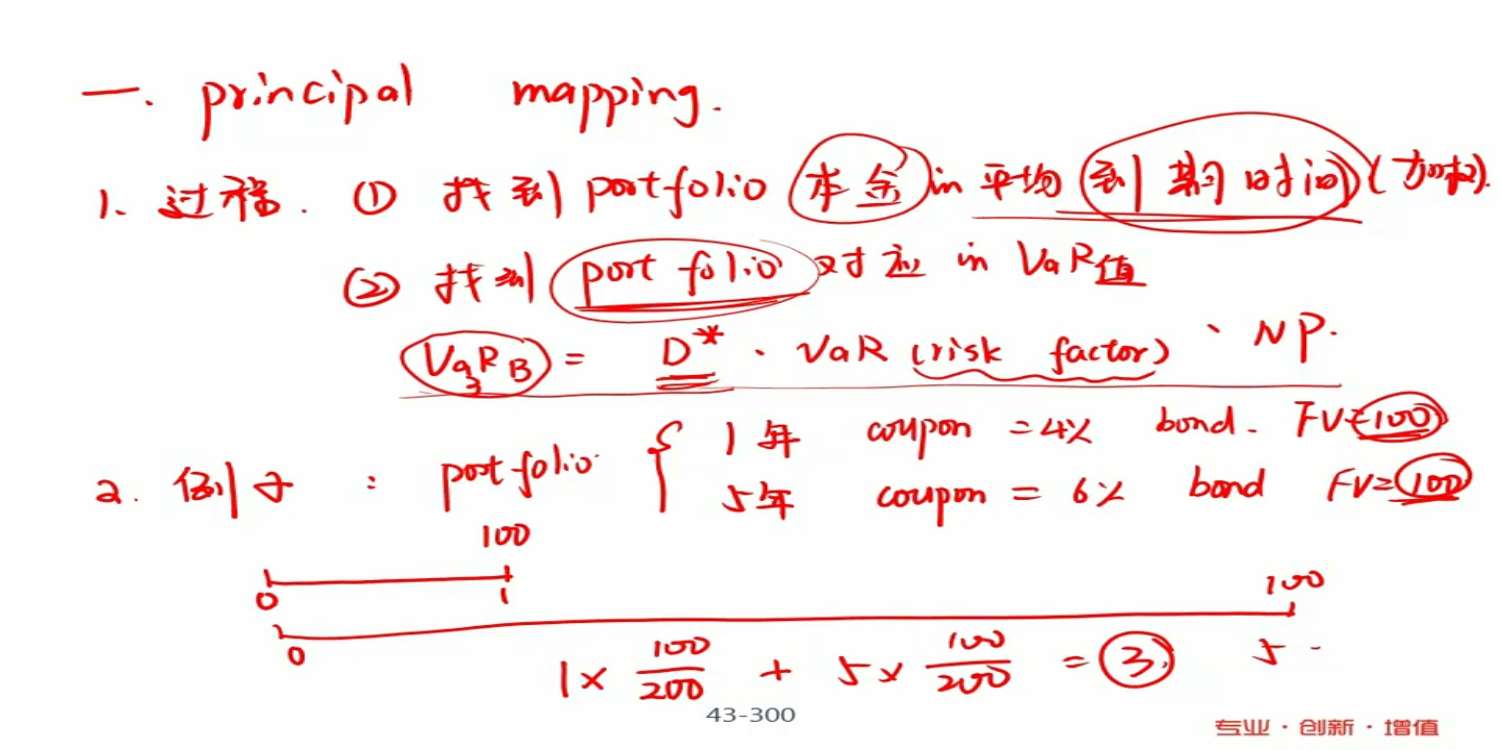 一. principal mapping.
1. 过程. ① 找到 portfolio 本金 in 平均到期时间 (加权).
② 找到 portfolio 对应 in VaR值
VaR_B = D* · VaR (risk factor) · NP.
2. 例子: portfolio { 1年 coupon = 4% bond. FV=100
5年 coupon = 6% bond FV=100
100
0 1
100
0 5
1 × 100/200 + 5 × 100/200 = 3
43-300
专业·创新·增值